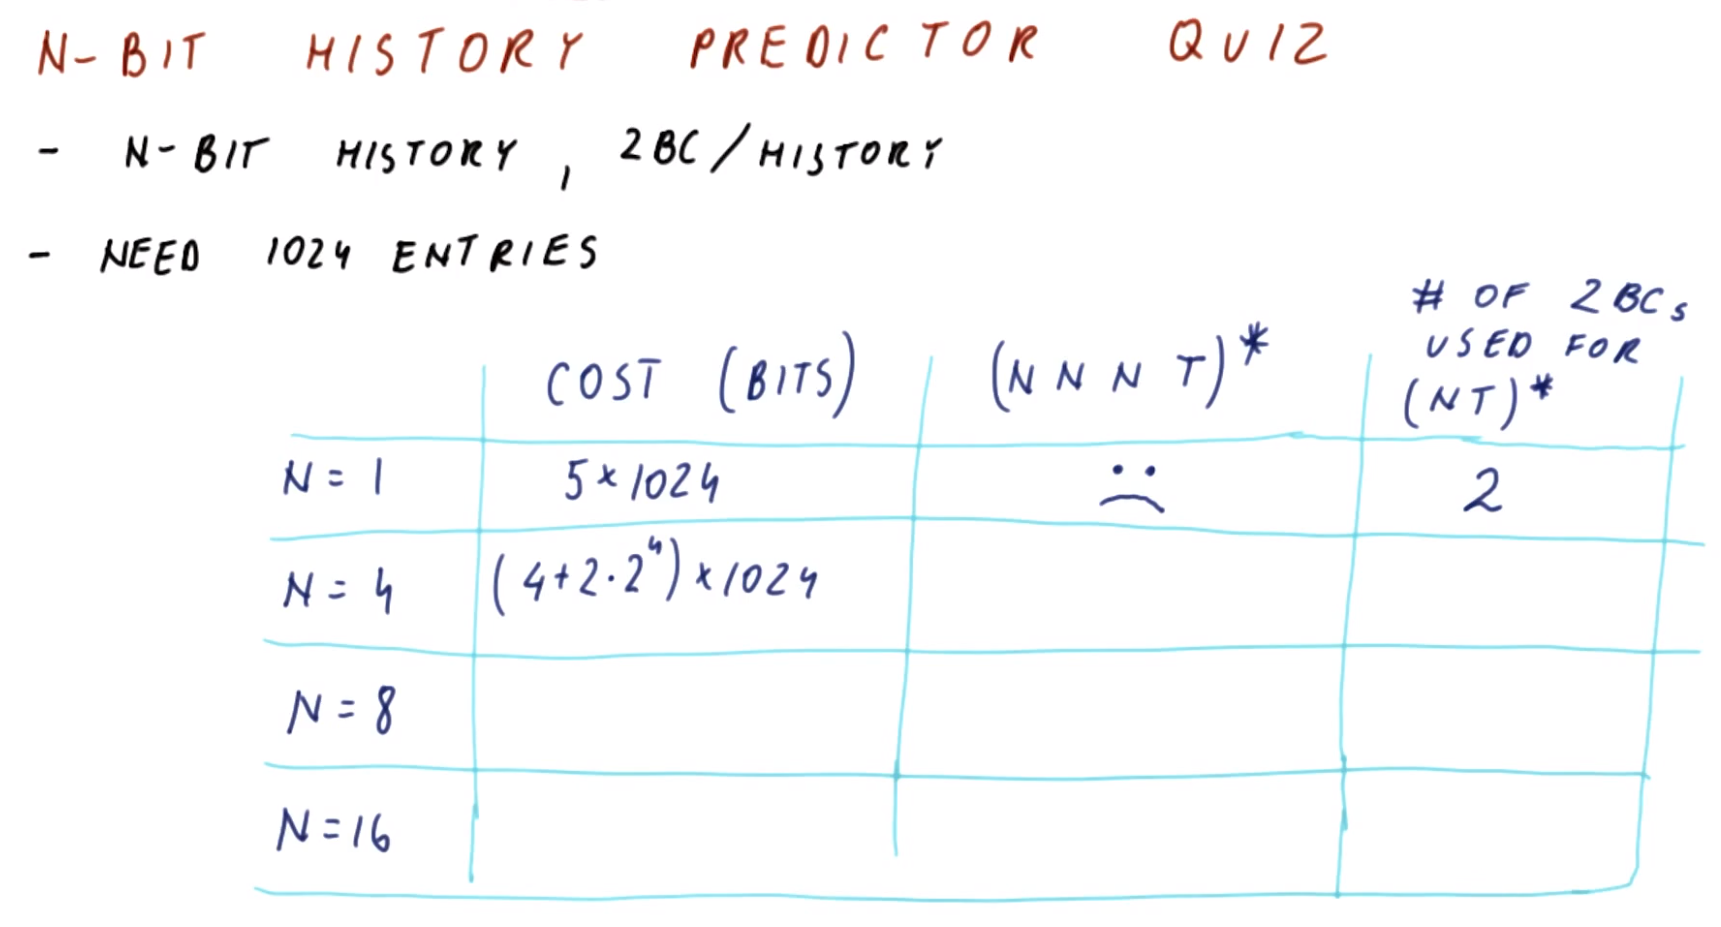 N-BIT HISTORY PREDICTOR QUIZ
- N-BIT HISTORY, 2BC/HISTORY
- NEED 1024 ENTRIES
COST (BITS)
(N N N T)*
# OF 2BCs
USED FOR
(NT)*
N = 1
5×1024
2
N = 4
(4+2·2⁴)×1024
N = 8
N=16